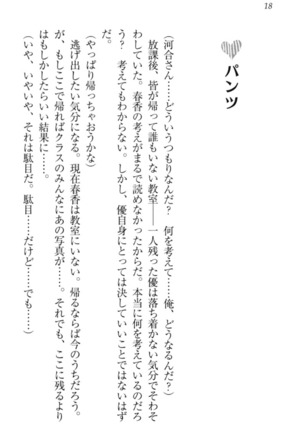 18
パンツ
(河合さん……どういうつもりなんだ？　何を考えて……俺、どうなるんだ？)
放課後、皆が帰って誰もいない教室――一人残った優は落ち着かない気分でそわそ
わしていた。春香の考えがまるで読めなかったからだ。本当に何を考えているのだろ
う？　考えてもわからない。しかし、優自身にとっては決していいことではないはず
だ。
(やっぱり帰っちゃおうかな)
逃げ出したい気分になる。現在春香は教室にいない。帰るならば今のうちだろう。
が、もしここで帰ればクラスのみんなにあの写真が……。それでも、ここに残るより
はもしかしたらいい結果に……。
(いや、いやいや、それは駄目だ。駄目……だけど……でも……)